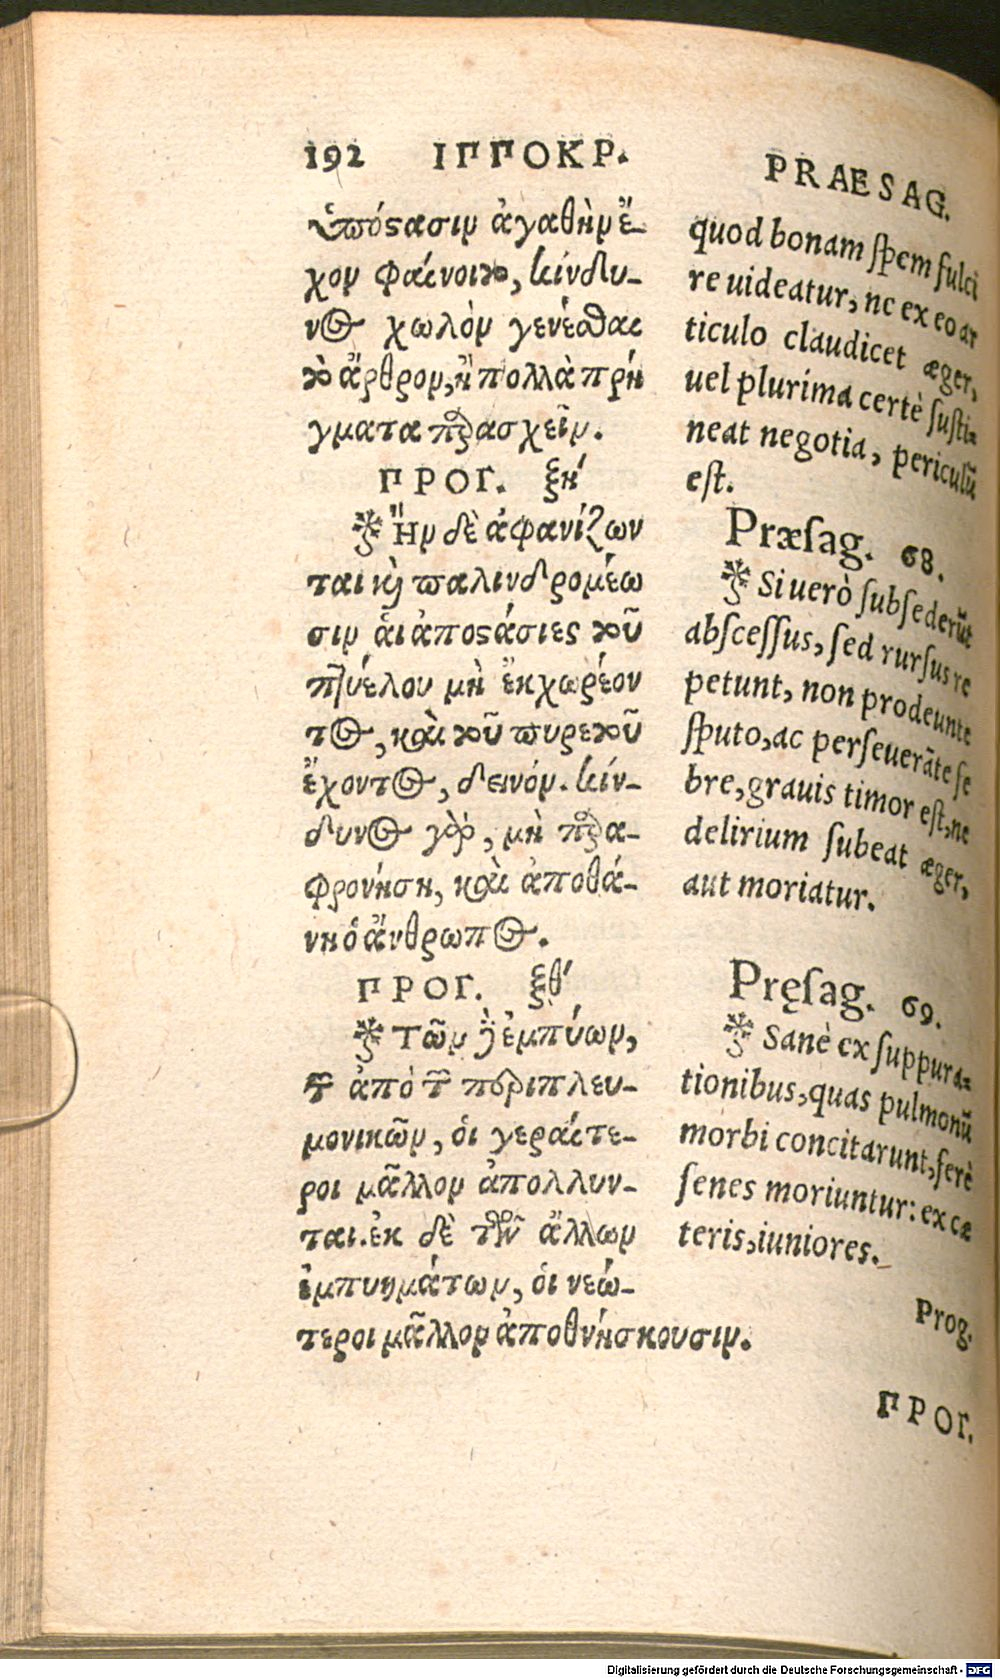 192 ΙΠΠΟΚΡ.
ὑπόστασιν ἀγαθὴν ἔ-
χον φαίνοιτο, κίνδυ-
νος χωλὸν γενέσθαι
τὸ ἄρθρον, ἢ πολλὰ πρή
γματα παρασχεῖν.
ΠΡΟΓ. ξη΄
Ἢν δὲ ἀφανίζων
ται καὶ παλινδρομέω
σιν ἁι ἀποστάσιες τοῦ
πτυέλου μὴ ἐκχωρέον
τος, καὶ τοῦ πυρετοῦ
ἔχοντος, δεινόν. κίν-
δυνος γὰρ, μὴ παρα-
φρονήσῃ, καὶ ἀποθά-
νῃ ὁ ἄνθρωπος.
ΠΡΟΓ. ξθ΄
Τῶν δὲ ἐμπύων,
τῶν ἀπὸ τῶν περιπλευ-
μονικῶν, ὁι γεραίτε-
ροι μᾶλλον ἀπολλυν-
ται. ἐκ δὲ τῶν ἄλλων
ἐμπυημάτων, ὁι νεώ-
τεροι μᾶλλον ἀποθνήσκουσιν.
PRAESAG.
quod bonam ſpem fulci
re uideatur, nc ex eo ar
ticulo claudicet æger,
uel plurima certè ſuſti-
neat negotia, periculũ
eſt.
Præſag. 68.
Si uerò ſubſederũt
abſceſſus, ſed rurſus re
petunt, non prodeunte
ſputo, ac perſeuerãte fe
bre, grauis timor eſt, ne
delirium ſubeat æger,
aut moriatur.
Pręſag. 69.
Sanè ex ſuppura-
tionibus, quas pulmonũ
morbi concitarunt, ferè
ſenes moriuntur: ex cæ
teris, iuniores.
Prog.
ΠΡΟΓ.
Digitalisierung gefördert durch die Deutsche Forschungsgemeinschaft - DFG